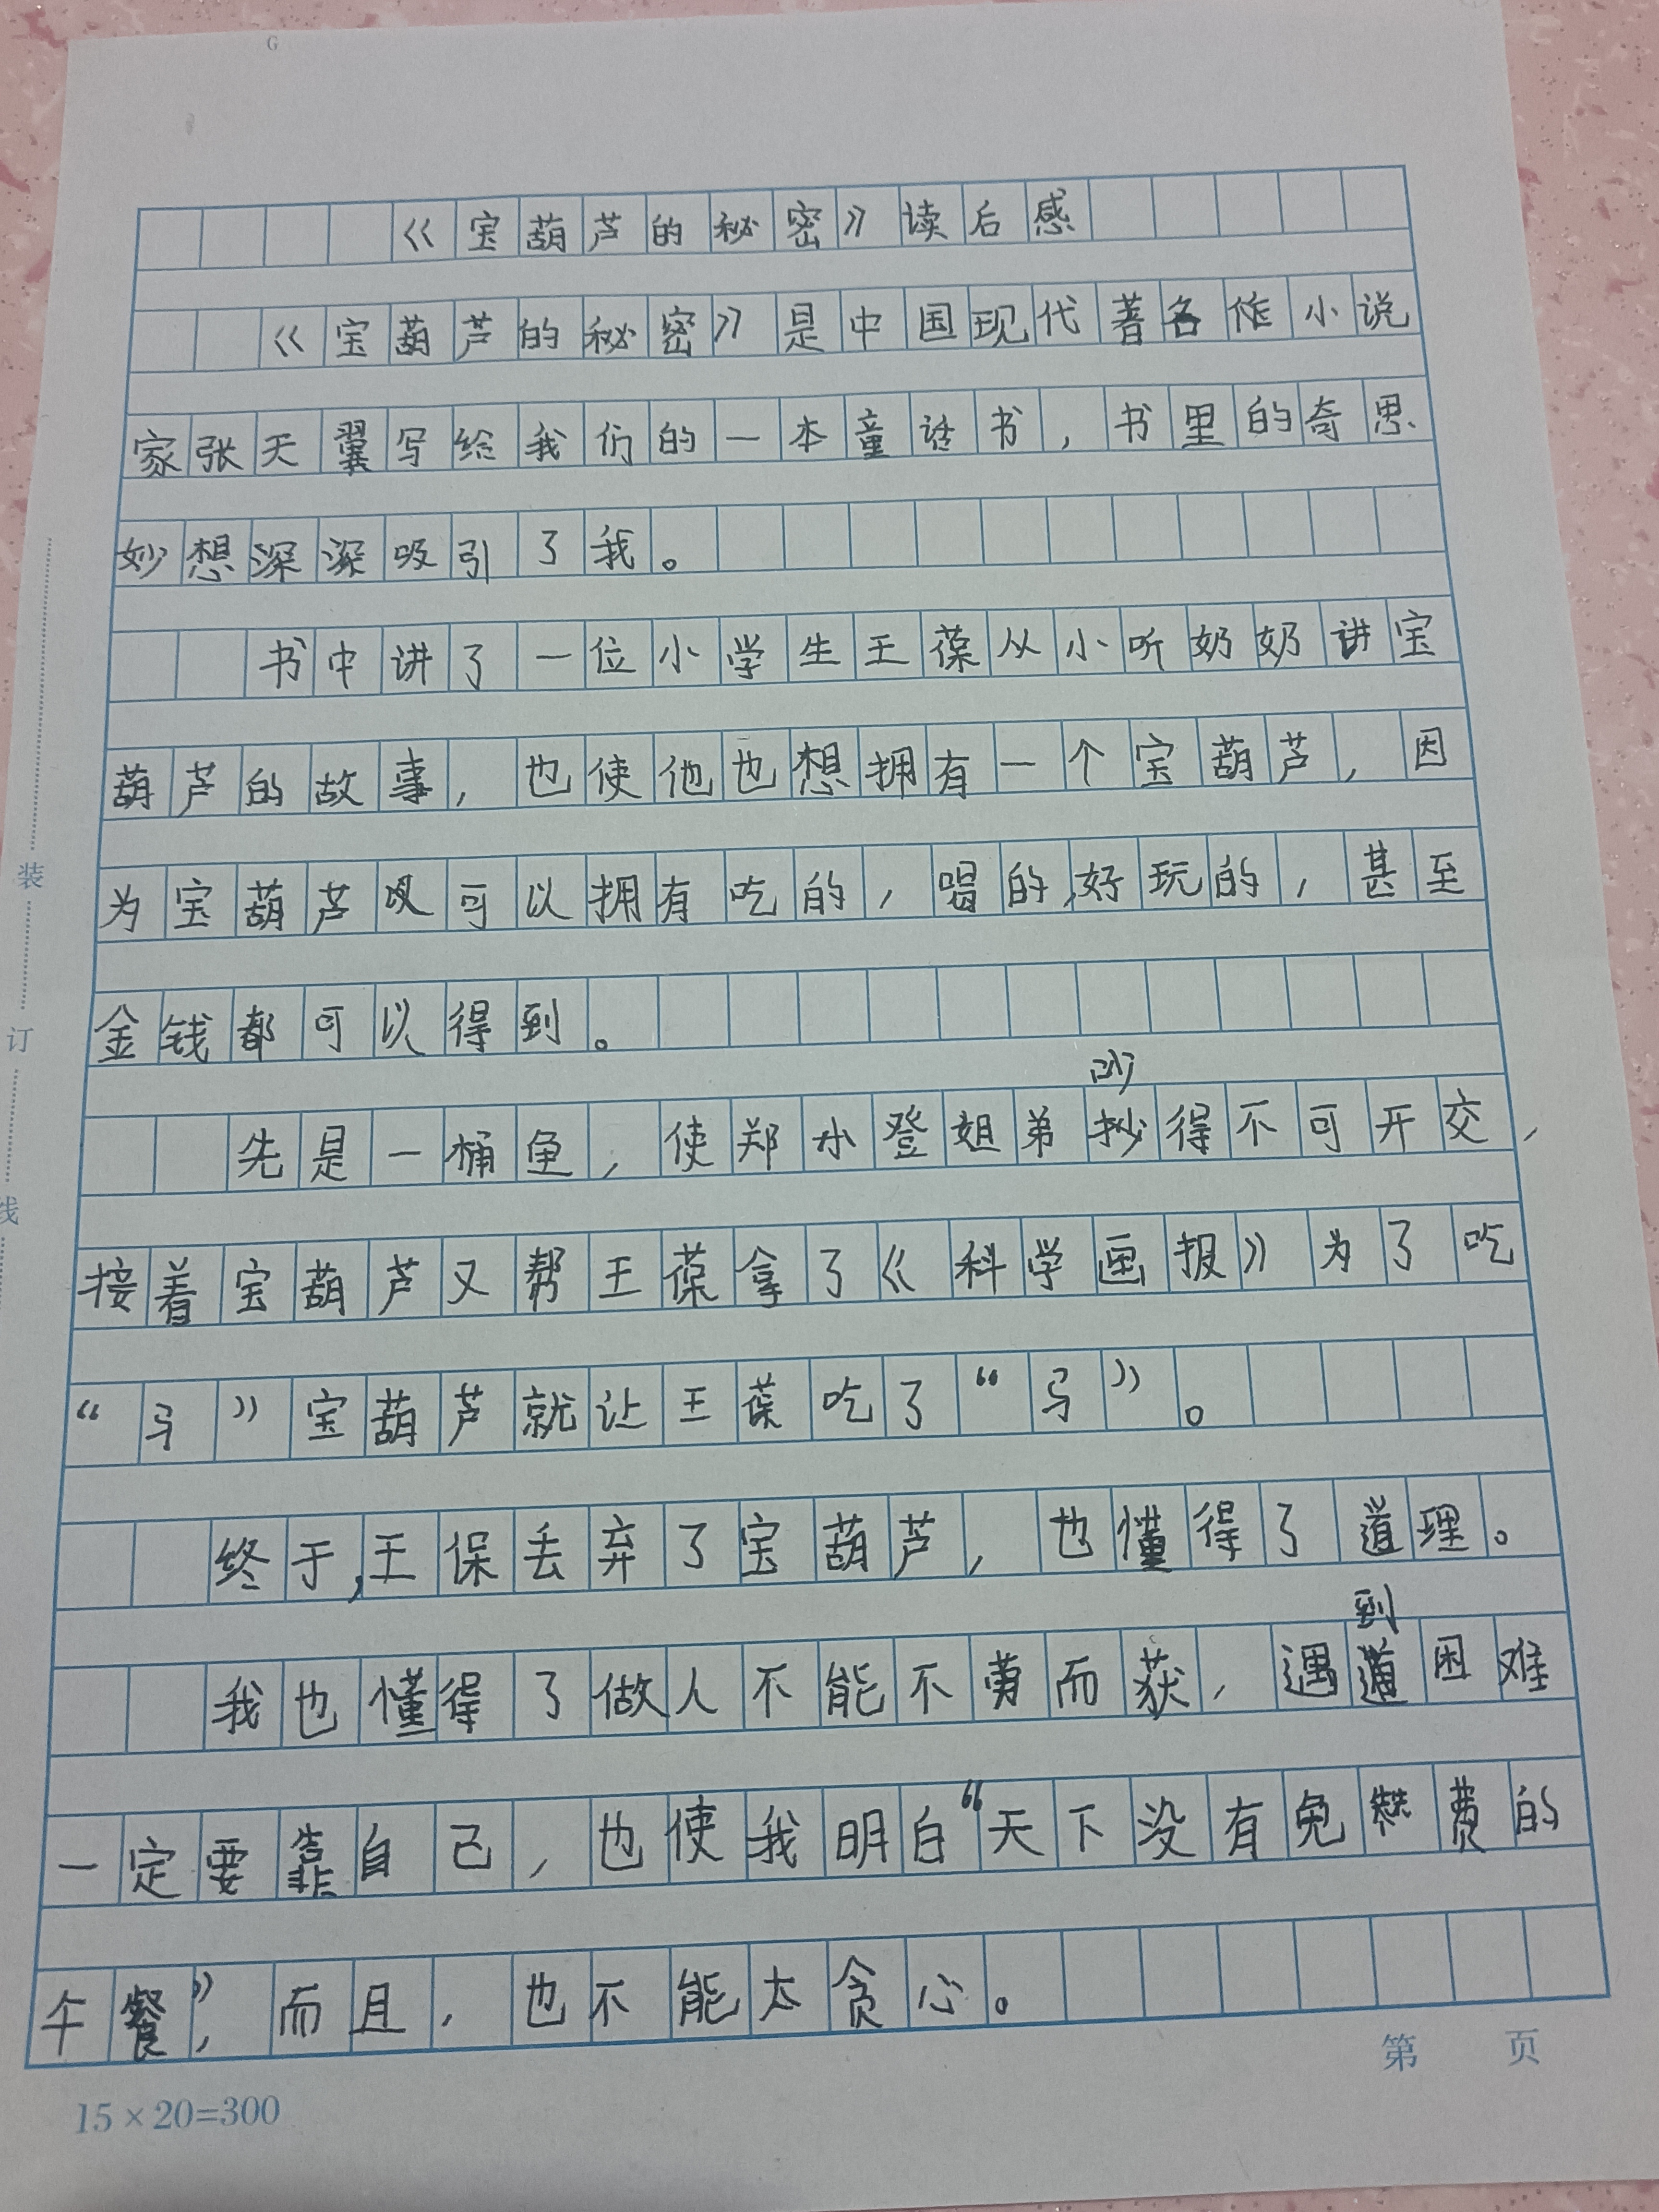 《宝葫芦的秘密》读后感
《宝葫芦的秘密》是中国现代著名作小说
家张天翼写给我们的一本童话书，书里的奇思
妙想深深吸引了我。
书中讲了一位小学生王葆从小听奶奶讲宝
葫芦的故事，也使他也想拥有一个宝葫芦，因
为宝葫芦可以拥有吃的，喝的，好玩的，甚至
金钱都可以得到。
吵
先是一桶鱼，使郑小登姐弟抄得不可开交，
接着宝葫芦又帮王葆拿了《科学画报》为了吃
“马”宝葫芦就让王葆吃了“马”。
终于，王保丢弃了宝葫芦，也懂得了道理。
到
我也懂得了做人不能不劳而获，遇道困难
一定要靠自己，也使我明白“天下没有免费的
午餐”，而且，也不能太贪心。
装
订
线
第 页
15×20=300